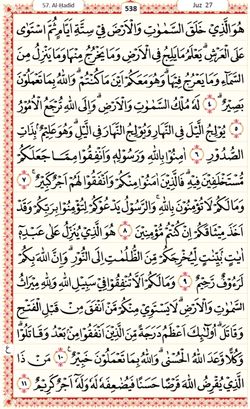 57. Al-Hadid 538 Juz 27
هُوَ الَّذِي خَلَقَ السَّمٰوٰتِ وَالْاَرْضَ فِي سِتَّةِ اَيَّامٍ ثُمَّ اسْتَوٰى
عَلَى الْعَرْشِۗ يَعْلَمُ مَا يَلِجُ فِى الْاَرْضِ وَمَا يَخْرُجُ مِنْهَا وَمَا يَنْزِلُ مِنَ
السَّمَاۤءِ وَمَا يَعْرُجُ فِيْهَاۗ وَهُوَ مَعَكُمْ اَيْنَ مَا كُنْتُمْۗ وَاللّٰهُ بِمَا تَعْمَلُوْنَ
بَصِيْرٌۗ ٤ لَهٗ مُلْكُ السَّمٰوٰتِ وَالْاَرْضِۗ وَاِلَى اللّٰهِ تُرْجَعُ الْاُمُوْرُ
٥ يُوْلِجُ الَّيْلَ فِى النَّهَارِ وَيُوْلِجُ النَّهَارَ فِى الَّيْلِۗ وَهُوَ عَلِيْمٌۢ بِذَاتِ
الصُّدُوْرِ ٦ اٰمِنُوْا بِاللّٰهِ وَرَسُوْلِهٖ وَاَنْفِقُوْا مِمَّا جَعَلَكُمْ
مُّسْتَخْلَفِيْنَ فِيْهِۗ فَالَّذِيْنَ اٰمَنُوْا مِنْكُمْ وَاَنْفَقُوْا لَهُمْ اَجْرٌ كَبِيْرٌۚ ٧
وَمَا لَكُمْ لَا تُؤْمِنُوْنَ بِاللّٰهِۚ وَالرَّسُوْلُ يَدْعُوْكُمْ لِتُؤْمِنُوْا بِرَبِّكُمْ وَقَدْ
اَخَذَ مِيْثَاقَكُمْ اِنْ كُنْتُمْ مُّؤْمِنِيْنَ ٨ هُوَ الَّذِيْ يُنَزِّلُ عَلٰى عَبْدِهٖٓ
اٰيٰتٍۢ بَيِّنٰتٍ لِّيُخْرِجَكُمْ مِّنَ الظُّلُمٰتِ اِلَى النُّوْرِۗ وَاِنَّ اللّٰهَ بِكُمْ
لَرَءُوْفٌ رَّحِيْمٌ ٩ وَمَا لَكُمْ اَلَّا تُنْفِقُوْا فِيْ سَبِيْلِ اللّٰهِ وَلِلّٰهِ مِيْرَاثُ
السَّمٰوٰتِ وَالْاَرْضِۗ لَا يَسْتَوِيْ مِنْكُمْ مَّنْ اَنْفَقَ مِنْ قَبْلِ الْفَتْحِ
وَقَاتَلَۗ اُولٰۤىِٕكَ اَعْظَمُ دَرَجَةً مِّنَ الَّذِيْنَ اَنْفَقُوْا مِنْۢ بَعْدُ وَقَاتَلُوْاۗ
وَكُلًّا وَّعَدَ اللّٰهُ الْحُسْنٰىۗ وَاللّٰهُ بِمَا تَعْمَلُوْنَ خَبِيْرٌ ١٠ مَنْ ذَا
الَّذِيْ يُقْرِضُ اللّٰهَ قَرْضًا حَسَنًا فَيُضٰعِفَهٗ لَهٗ وَلَهٗٓ اَجْرٌ كَرِيْمٌۚ ١١
ع